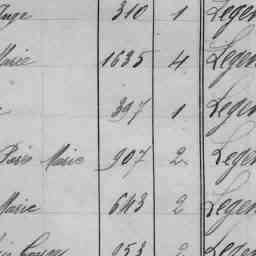 Ange 310 1 Legen
Marie 1635 4 Legen
397 1 Legen
Marie 907 2 Legen
Marie 643 2 Legen
953 2 Legen